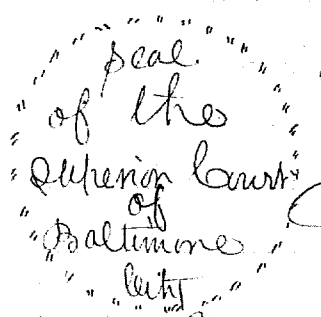 Seal
of the
Superior Court
of
Baltimore
City